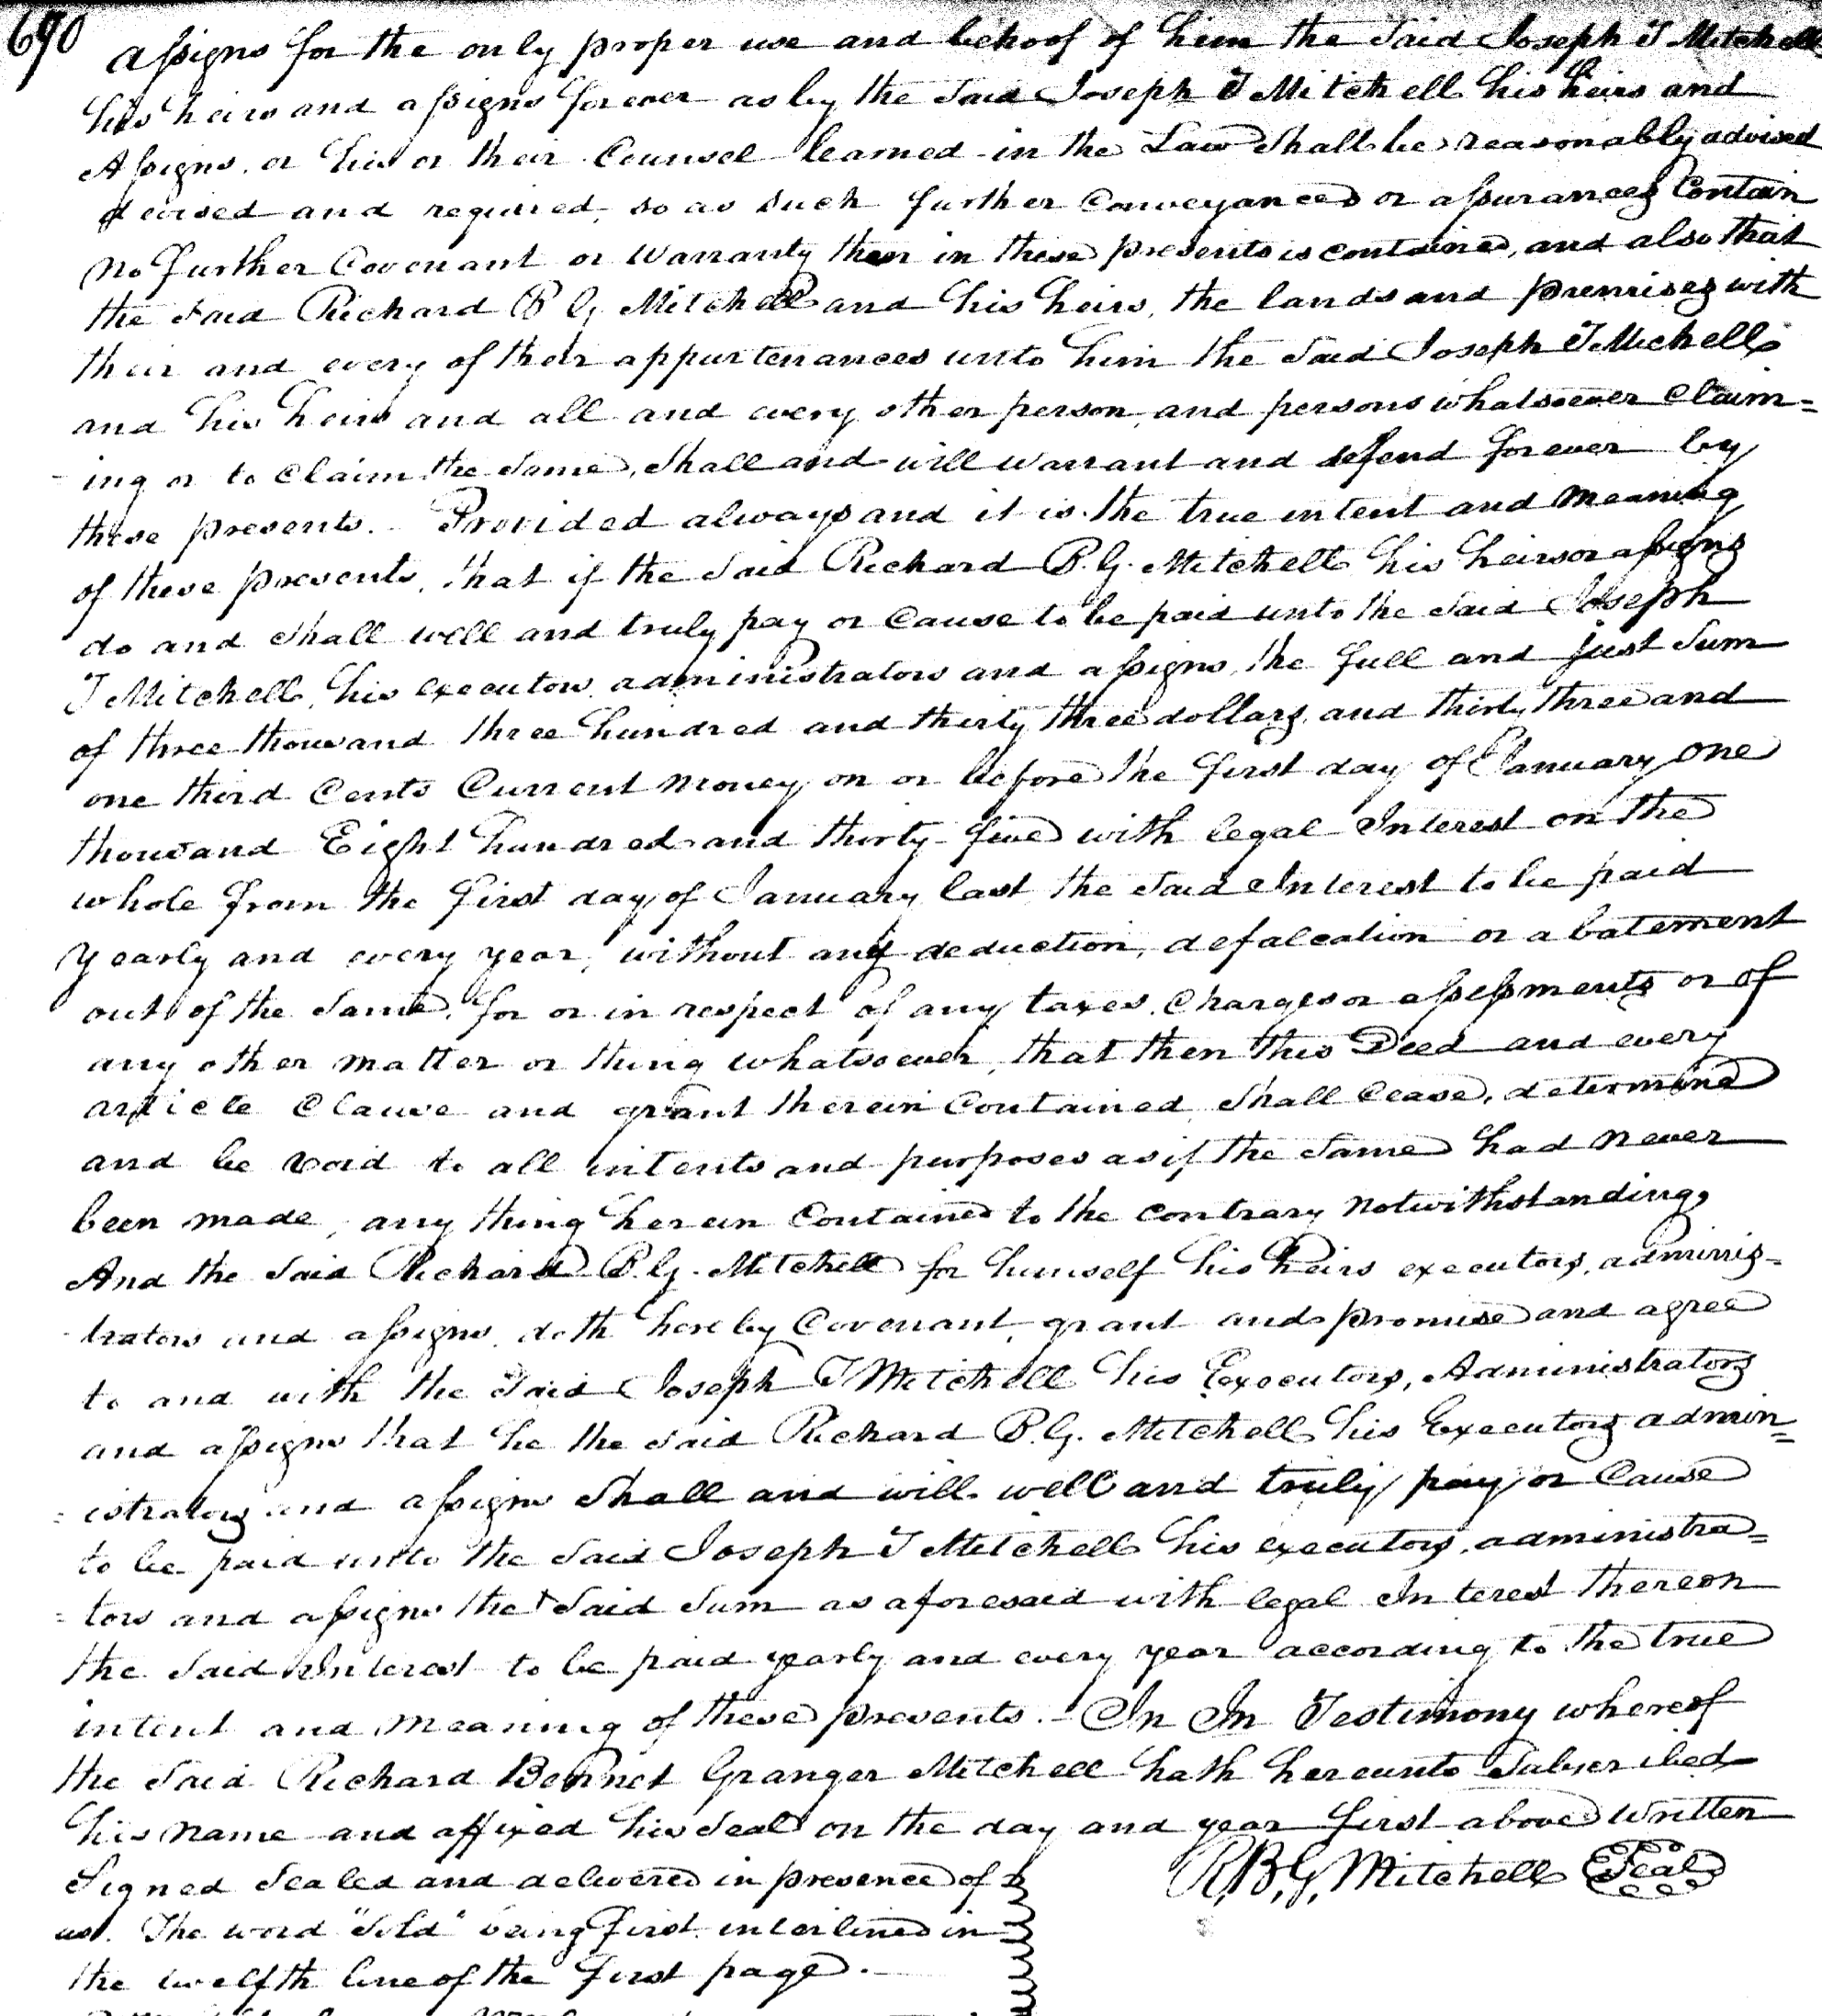 690 assigns for the only proper use and behoof of him the said Joseph T Mitchell
his heirs and assigns forever as by the said Joseph T Mitchell his heirs and
Assigns, or his or their Counsel learned in the Law shall be reasonably advised
devised and required, so as such further Conveyances or assurances Contain
no further Covenant or Warranty than in these presents is contained, and also that
the said Richard B G Mitchell and his heirs, the lands and premises with
their and every of their appurtenances unto him the said Joseph T Michell
and his heirs and all and every other person, and persons whatsoever Claim=
-ing or to Claim the same, shall and will warrant and defend forever by
these presents. - Provided always and it is the true intent and meaning
of these presents, that if the said Richard B. G. Mitchell his heirs or assigns
do and shall well and truly pay or Cause to be paid unto the said Joseph
T Mitchell, his executors, administrators and assigns, the full and just sum
of three thousand three hundred and thirty three dollars, and thirty three and
one third Cents Current money, on or before the first day of January one
thousand Eight hundred and thirty-five with legal Interest on the
whole from the first day of January last the said Interest to be paid
yearly and every year, without any deduction, defalcation or abatement
out of the same, for or in respect of any taxes, Charges or assessments or of
any other matter or thing whatsoever, that then this Deed and every
article Clause and grant therein Contained shall Cease, determine
and be void to all intents and purposes as if the same had never
been made, any thing herein Contained to the contrary notwithstanding,
And the said Richard B. G. Mitchell for himself his heirs executors, adminis-
trators and assigns, doth hereby Covenant, grant and promise and agree
to and with the said Joseph T Mitchell his Executors, Administrators
and assigns that he the said Richard B. G. Mitchell his Executors admin=
=istrators and assigns shall and will well and truly pay or Cause
to be paid unto the said Joseph T Mitchell his executors, administra=
=tors and assigns the said sum as aforesaid with legal Interest thereon
the said Interest to be paid yearly and every year according to the true
intent and meaning of these presents. - In In Testimony whereof
the said Richard Bennet Granger Mitchell hath hereunto subscribed
his name and affixed his seal on the day and year first above written
Signed sealed and delivered in presence of
us. The word "sold" being first interlined in
the twelfth line of the first page. -
R, B, G, Mitchell Seal